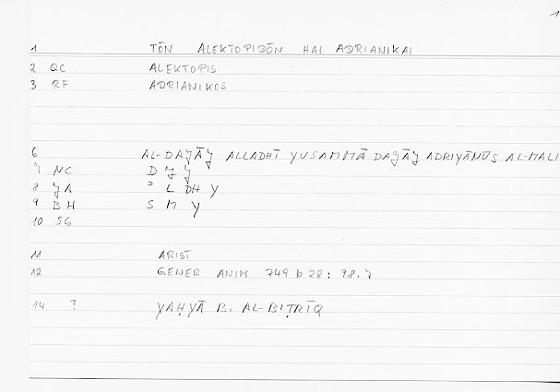 1
1 TŌN ALEKTOPIDŌN HAI ADRIANIKAI
2 QC ALEKTOPIS
3 RF ADRIANIKOS
6 AL-DAJĀJ ALLADHĪ YUSAMMĀ DAJĀJ ADRIYĀNŪS AL-MALI
7 NC D J J
8 JA ʾ L DH Y
9 BH S M Y
10 SG
11 ARIST
12 GENER ANIM 749 b 28 : 98.7
14 ? YAḤYĀ B. AL-BIṬRĪQ